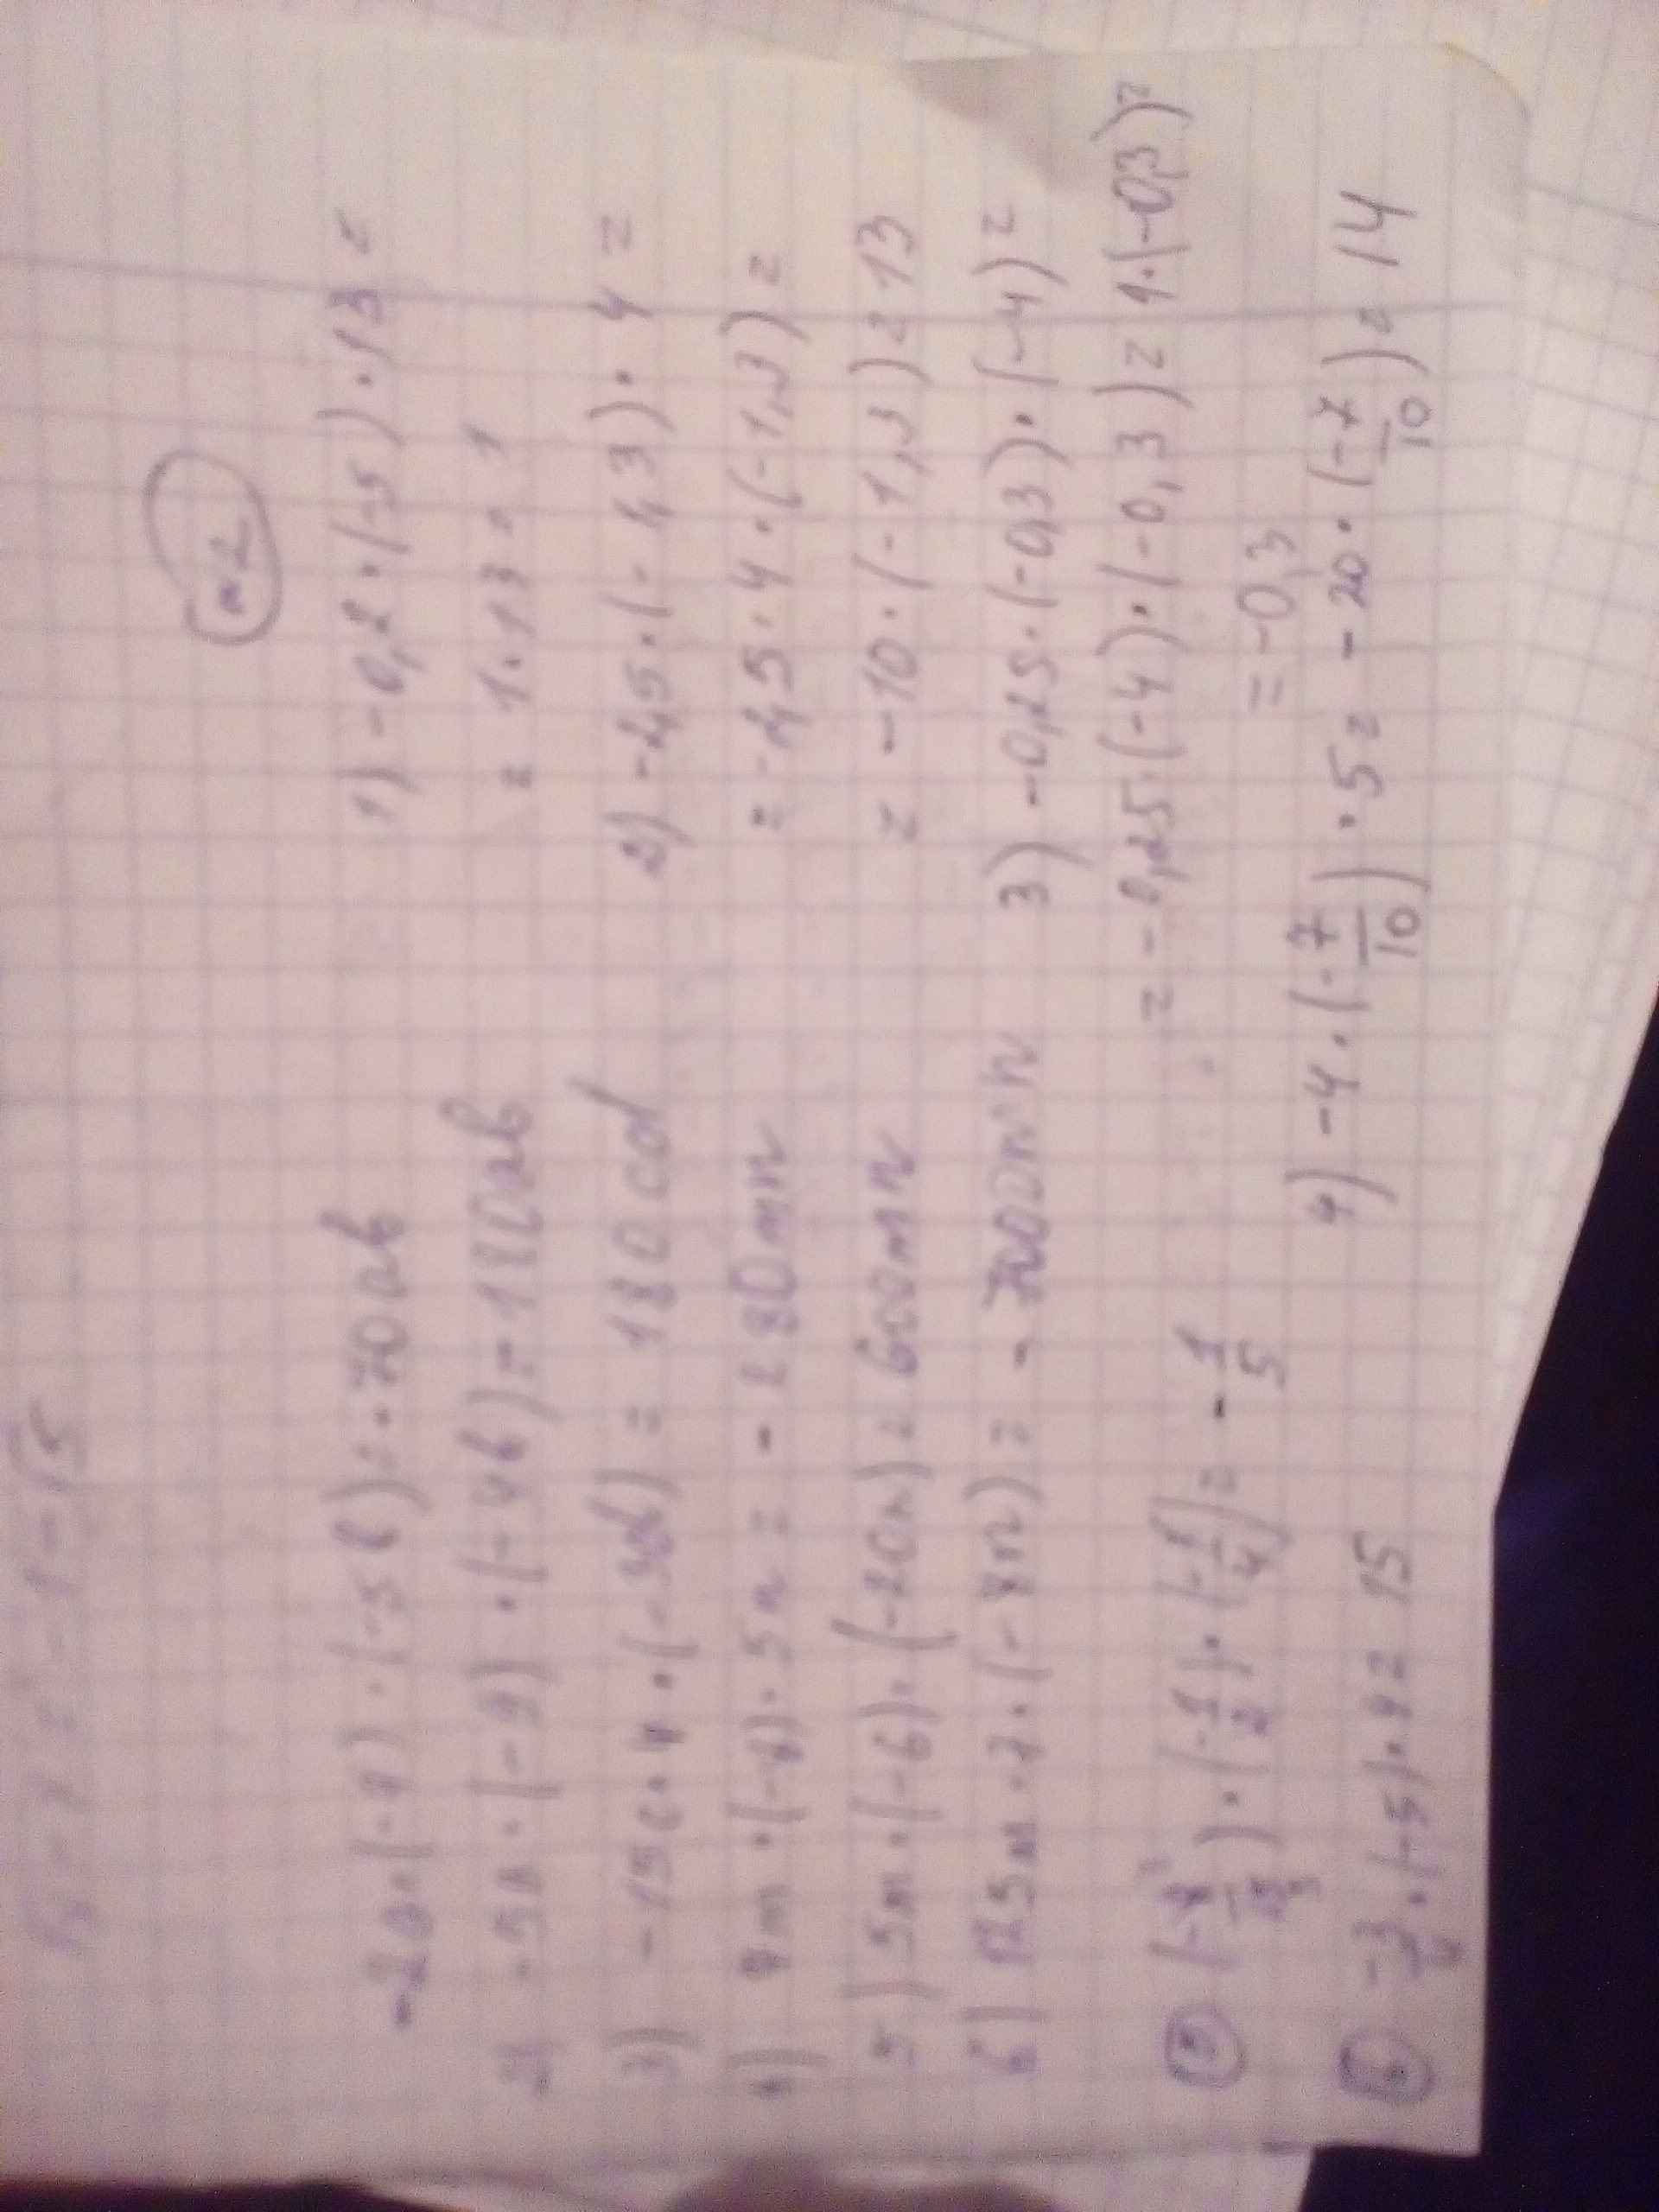 -2a·(-7)·(-5b)=-70ab
2) -5a·(-9)·(-4b)=-180ab
3) -15c·4·(-3d) = 180cd
4) 7m·(-8)·5n = -280mn
5) 5m·(-6)·(-20n)=600mn
6) 125m·7·(-8n) = -7000mn
·(-1/2)·(-1/4)= -1/5
·(-5)·4= 15
№2
1) -0,2·(-5)·13=
= 1·13= 1
2) -2,5·(-1,3)·4=
= -2,5·4·(-1,3)=
= -10·(-1,3)=13
3) -0,25·(-0,3)·(-4)=
= -0,25·(-4)·(-0,3)=1·(-0,3)=
= -0,3
4) -4·(-7/10)·5= -20·(-7/10)= 14